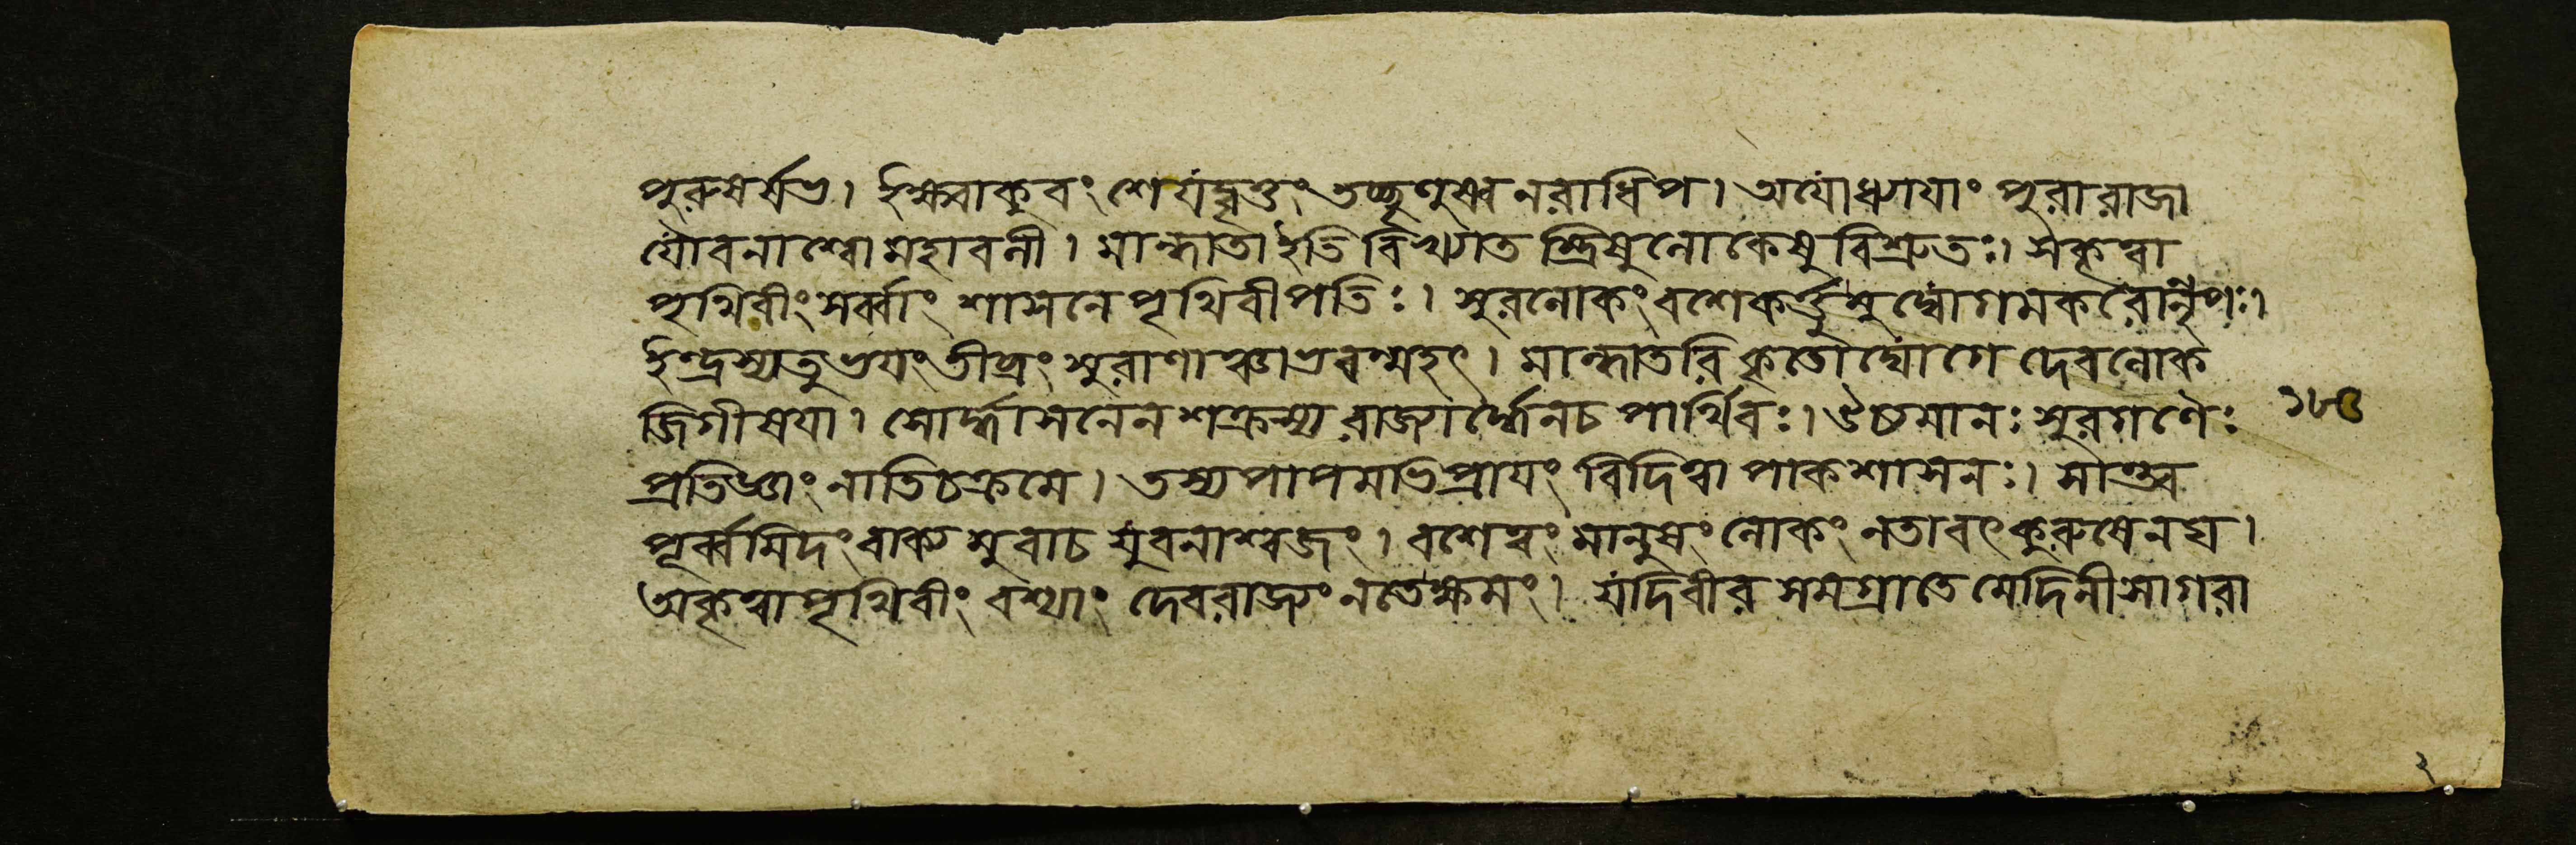 পুরুষর্ষভ। ইক্ষ্বাকুবংশে যদ্বৃত্তং তচ্ছৃণুষ্ব নরাধিপ। অযোধ্যাযাং পুরা রাজা
যৌবনাশ্বো মহাবলী। মান্ধাতা ইতি বিখ্যাত স্ত্রিষু লোকেষু বিশ্রুতঃ। স কৃত্বা
পৃথিবীং সর্ব্বাং শাসনে পৃথিবীপতিঃ। সুরলোকং বশে কর্ত্তুমুদ্যোগমকরোন্নৃপঃ।
ইন্দ্রস্য তু ভযং তীব্রং সুরাণাঞ্চাভবন্মহৎ। মান্ধাতরি কৃতোদ্যোগে দেবলোক
জিগীষযা। সোর্দ্ধাসনেন শক্রস্য রাজ্যার্দ্ধেন চ পার্থিবঃ। ঈড্যমানঃ সুরগণৈঃ ১৮৫
প্রতিজ্ঞাং নাতিচক্রমে। তস্য পাপমভিপ্রাযং বিদিত্বা পাকশাসনঃ। সান্ত্ব
পূর্ব্বমিদং বাক্যমুবাচ যুবনাশ্বজং। বশে ত্বং মানুষং লোকং ন তাবৎ কুরুষেনঘ।
অকৃত্বা পৃথিবীং বশ্যাং দেবরাজ্যং ন তে ক্ষমং। যদি বীর সমগ্রা তে মেদিনী সাগরা
২